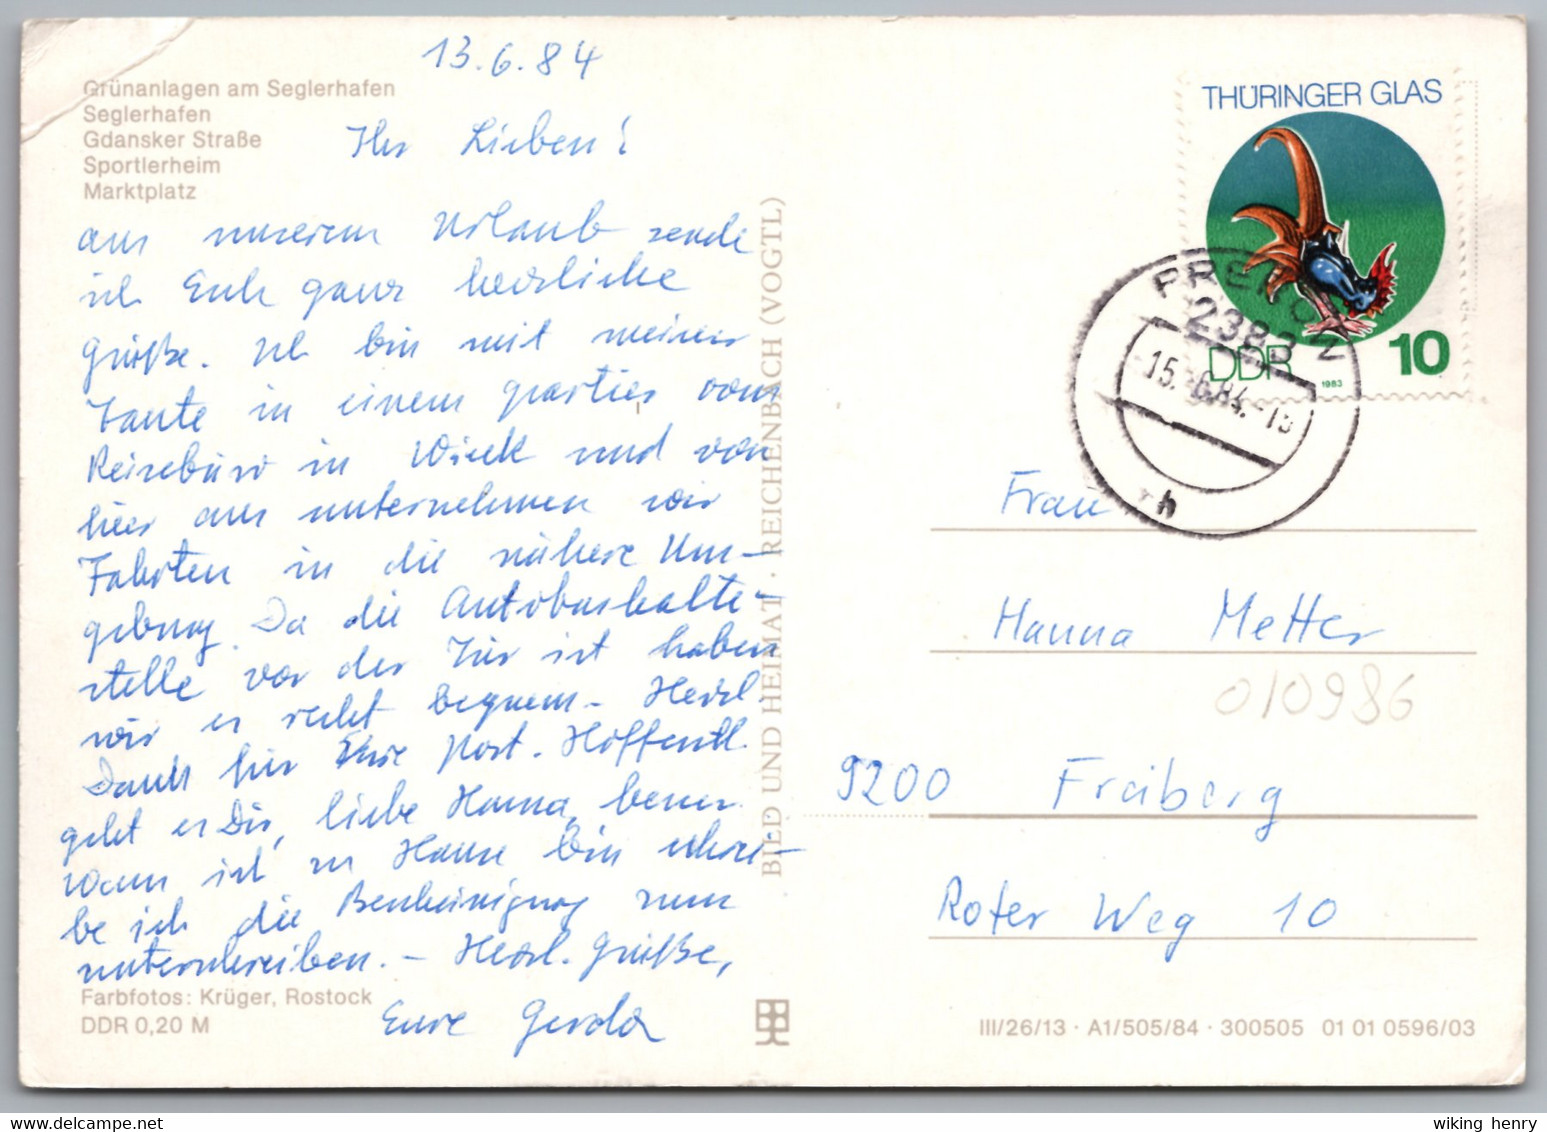 Grünanlagen am Seglerhafen
Seglerhafen
Gdansker Straße
Sportlerheim
Marktplatz
13.6.84
Ihr Lieben!
aus unserem Urlaub sende
ich Euch ganz herzliche
Grüße. Ich bin mit meiner
Tante in einem quartier vom
Reisebüro in Wieck und von
hier aus unternehmen wir
Fahrten in die nähere Um-
gebung. Da die Autobushalte-
stelle vor der Tür ist haben
wir es recht bequem. - Herzl.
Dank für Eure Post. Hoffentl.
geht es Dir, liebe Hanna, besser.
Wenn ich zu Hause bin schrei-
be ich die zum
unterschreiben. - Herzl. Grüße,
Eure Gerda
Farbfotos: Krüger, Rostock
DDR 0,20 M
BILD UND HEIMAT · REICHENBACH (VOGTL)
THÜRINGER GLAS
DDR
1983
10
2383 2
15.-6.84.-15
h
Frau
Hanna Metter
010986
9200 Freiberg
Roter Weg 10
III/26/13 · A1/505/84 · 300505 01 01 0596/03
wiking henry